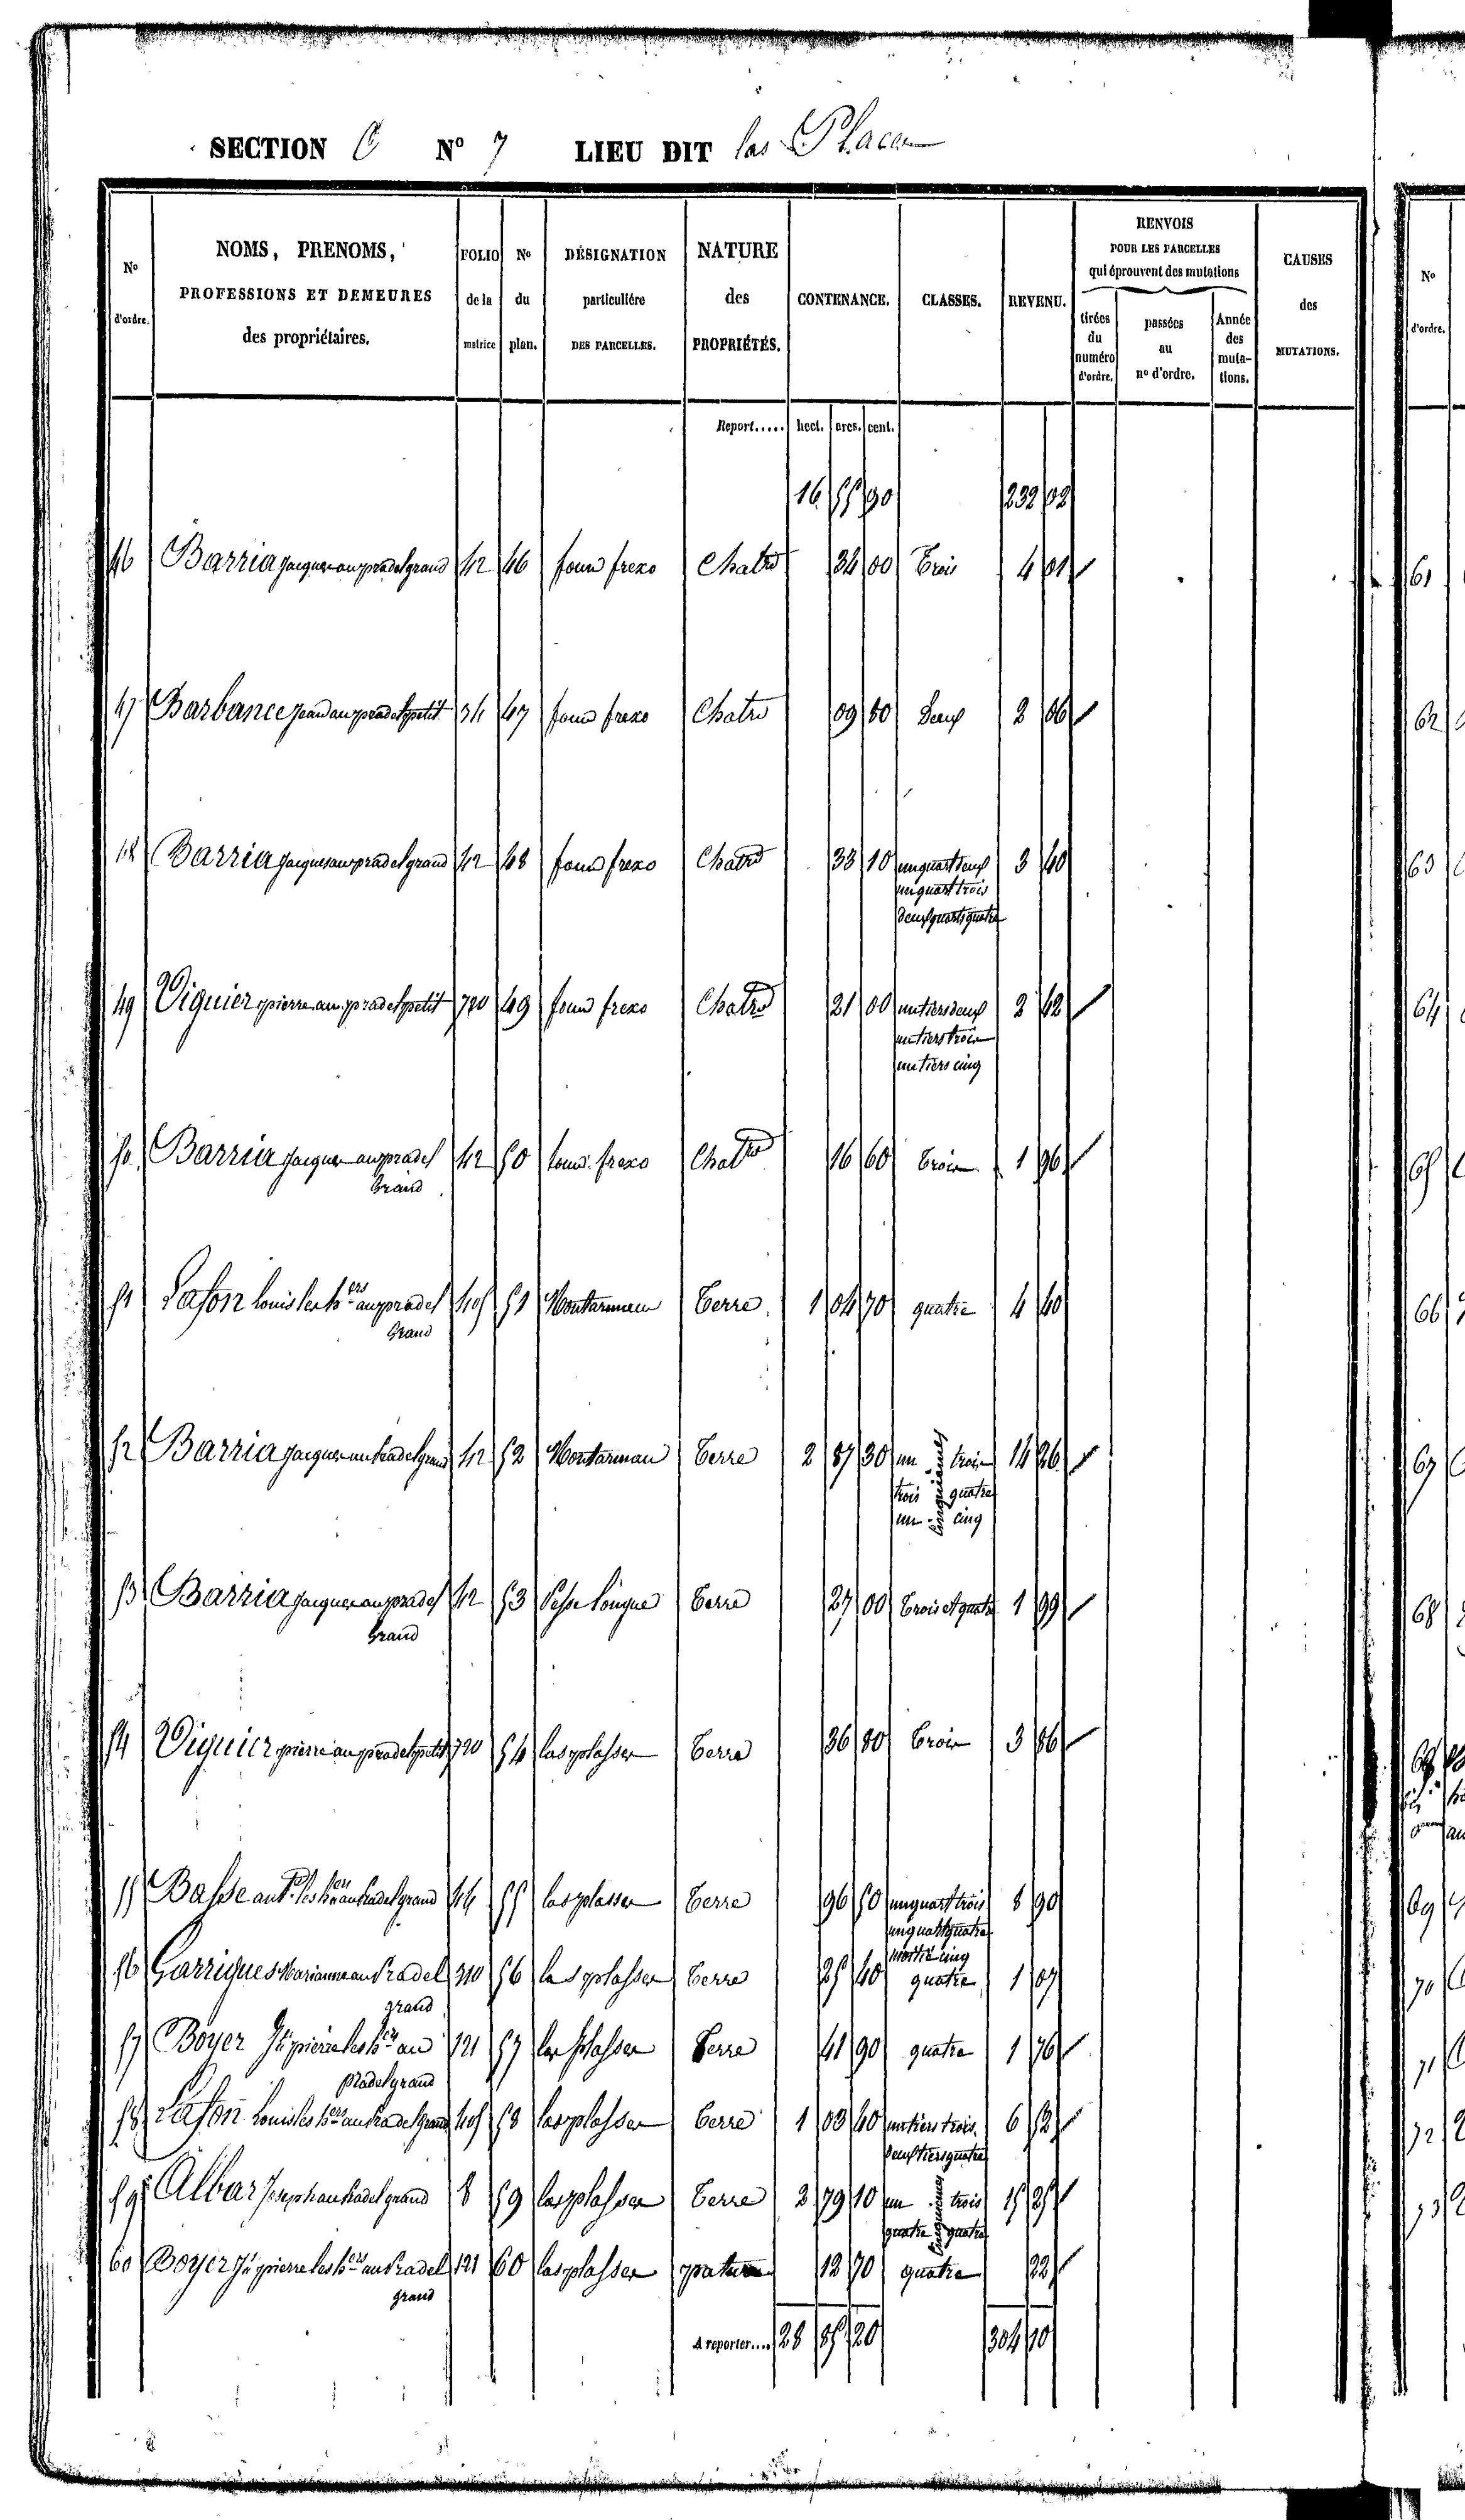 SECTION C N° 7 LIEU DIT las Places
N° d'ordre. NOMS, PRENOMS, PROFESSIONS ET DEMEURES des propriétaires. FOLIO de la matrice N° du plan. DÉSIGNATION particulière DES PARCELLES. NATURE des PROPRIÉTÉS. CONTENANCE. CLASSES. REVENU. RENVOIS POUR LES PARCELLES qui éprouvent des mutations tirées du numéro d'ordre. passées au n° d'ordre. Année des mutations. CAUSES des MUTATIONS.
Report..... hect. ares. cent.
16 55 90 232 02
46 Barria jacques au pradel grand 42 46 foun frexo Chatre 34 00 Trois 4 01
47 Barbance jean au pradel petit 34 47 foun frexo Chatre 09 80 Deux 2 06
48 Barria jacques au pradel grand 42 48 foun frexo Chatre 33 10 un quart deux 3 40
un quart trois
deux quarts quatre
49 Viguier pierre au pradel petit 720 49 foun frexo Chatre 21 00 un tiers deux 2 62
un tiers trois
un tiers cinq
50 Barria jacques au pradel 42 50 foun frexo Chatre 16 60 Trois 1 96
Grand
51 Lafon louis les hers au pradel 405 51 Montarman Terre 1 04 70 quatre 4 40
Grand
52 Barria jacques au Pradel grand 42 52 Montarman Terre 2 87 30 un trois 14 26
trois cinquièmes quatre
un cinq
53 Barria jacques au pradel 42 53 Terre 27 00 Trois et quatre 1 99
Grand
54 Viguier pierre au pradel petit 720 54 las plasses Terre 36 80 Trois 3 86
55 Basse ant. les hers au Pradel grand 44 55 las plasses Terre 96 50 un quart trois 5 90
un quart quatre
moitié cinq
56 Garrigues Marianne au Pradel 310 56 las plasses Terre 25 40 quatre 1 07
grand
57 Boyer Jn pierre les hers au 121 57 las plasses Terre 41 90 quatre 1 76
Pradel grand
58 Lafon Louis les hers au Pradel Grand 405 58 las plasses Terre 1 03 40 un tiers trois 6 52
deux tiers quatre
59 Albar Joseph au Pradel grand 8 59 las plasses Terre 2 79 10 un trois 15 25
quatre cinquièmes quatre
60 Boyer Jn pierre les hers au Pradel 121 60 las plasses pature 12 70 quatre 22
grand
A reporter.... 28 85 20 304 10
N° d'ordre.
61
62
63
64
65
66
67
68
69
70
71
72
73